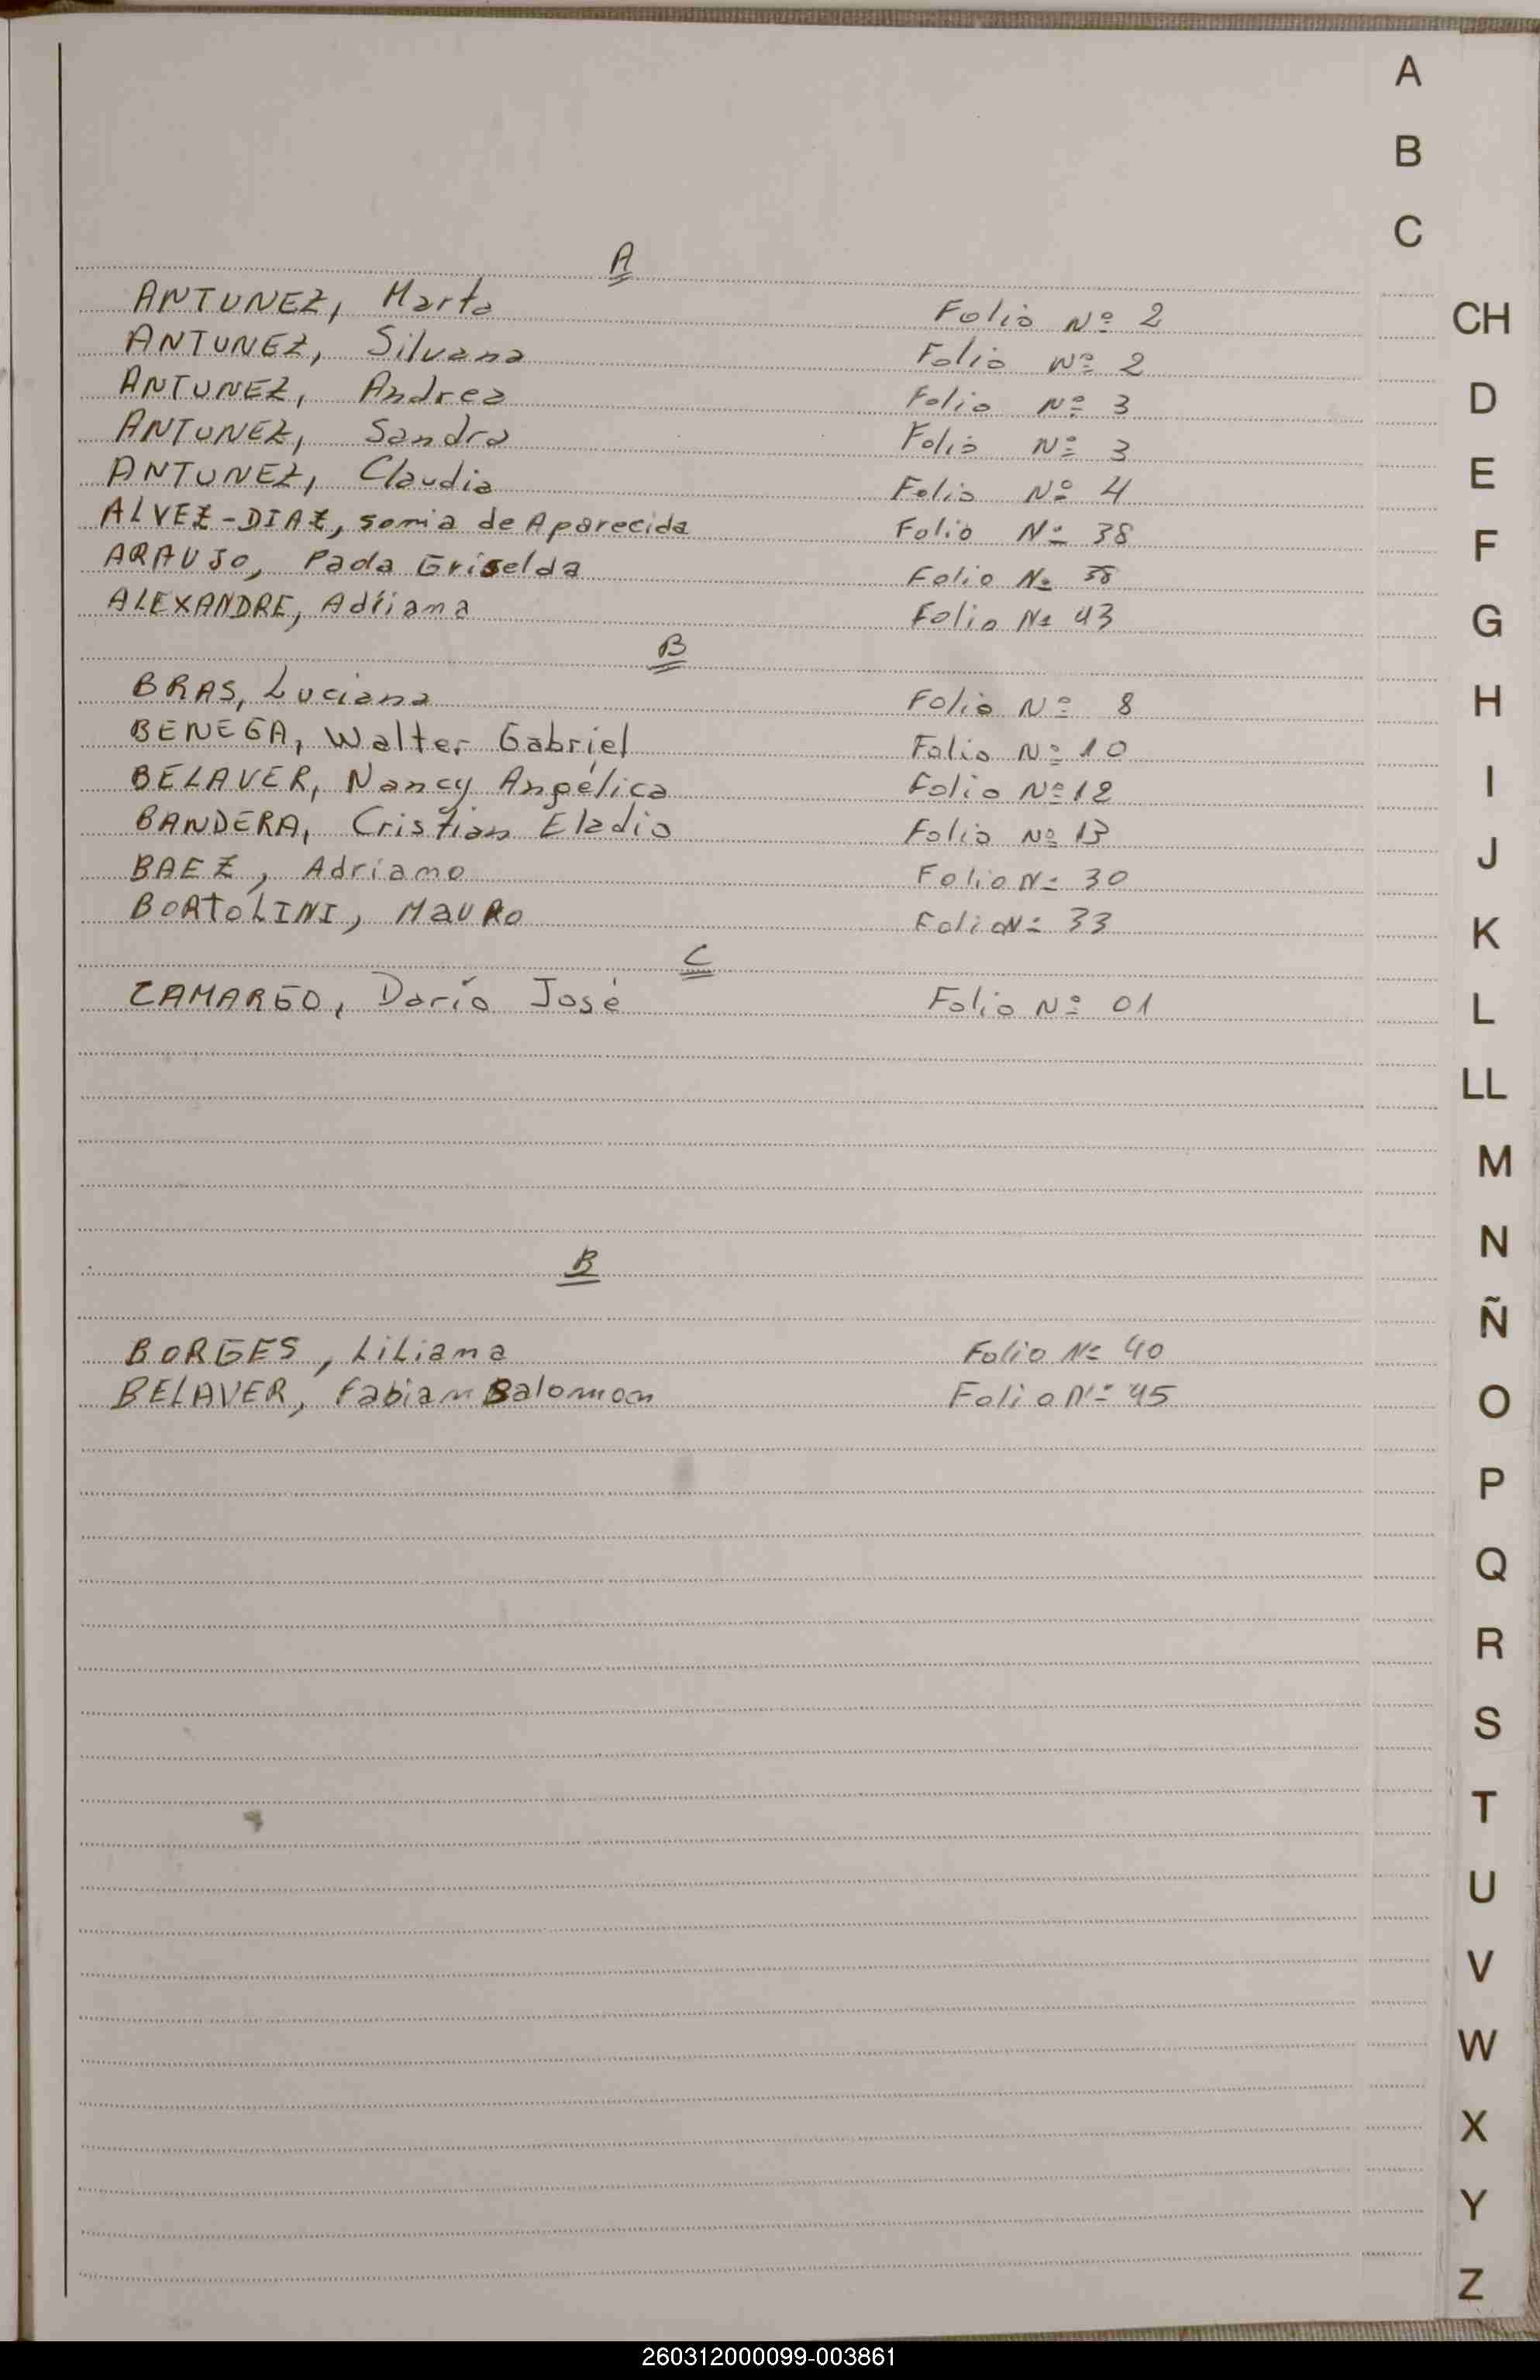 A
ANTUNEZ, Marta Folio Nº 2
ANTUNEZ, Silvana Folio Nº 2
ANTUNEZ, Andrea Folio Nº 3
ANTUNEZ, Sandra Folio Nº 3
ANTUNEZ, Claudia Folio Nº 4
ALVEZ-DIAZ, sonia de Aparecida Folio Nº 38
ARAUJO, Griselda Folio Nº
ALEXANDRE, Adriana Folio Nº 43
B
BRAS, Luciana Folio Nº 8
BENEGA, Walter Gabriel Folio Nº 10
BELAVER, Nancy Angélica Folio Nº 12
BANDERA, Cristian Eladio Folio Nº 13
BAEZ, Adriano Folio Nº 30
BORTOLINI, MAURO Folio Nº 33
C
CAMARGO, Darío José Folio Nº 01
B
BORGES, Liliana Folio Nº 40
BELAVER, Fabian Salomon Folio Nº 45
A
B
C
CH
D
E
F
G
H
I
J
K
L
LL
M
N
Ñ
O
P
Q
R
S
T
U
V
W
X
Y
Z
260312000099-003861